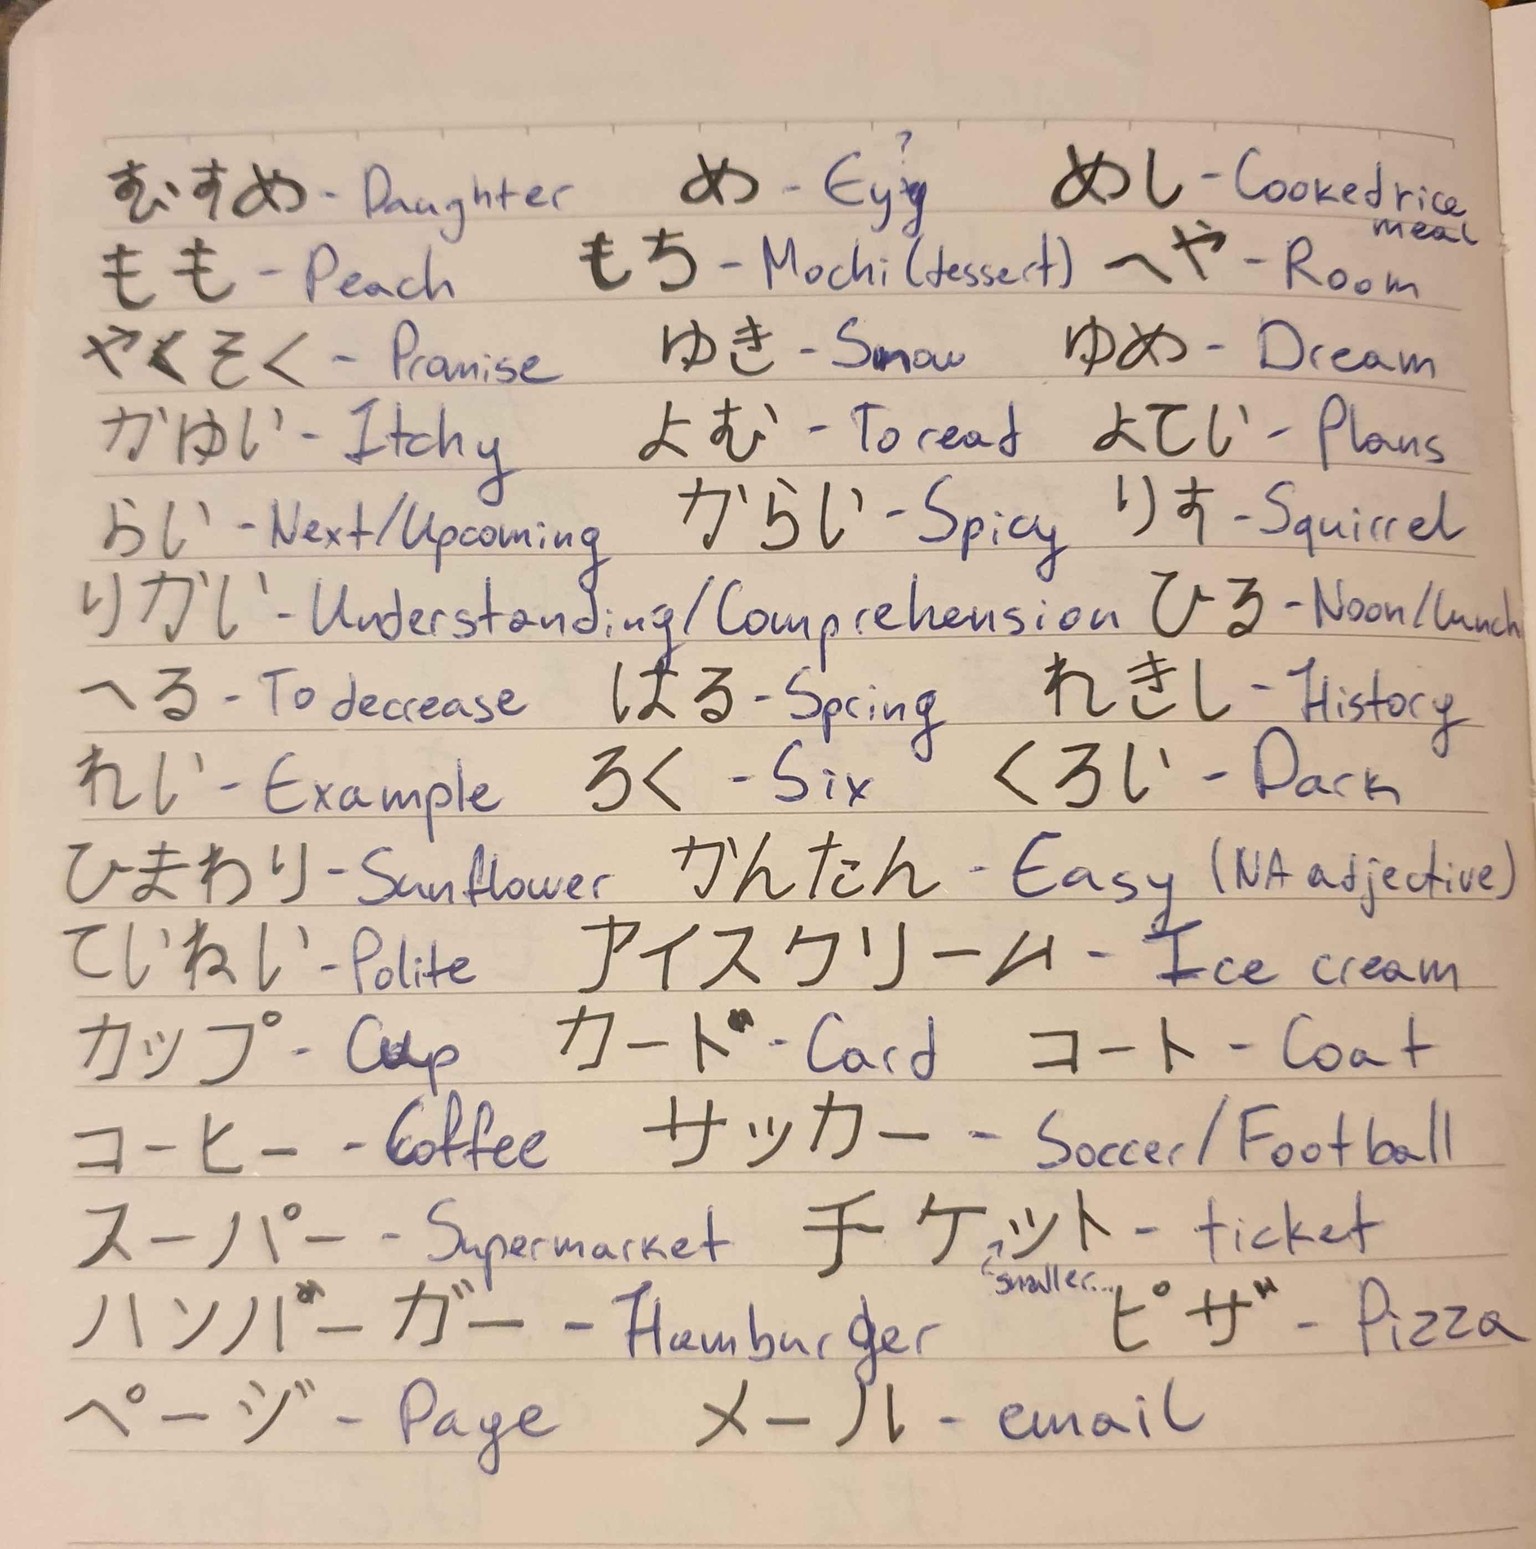 むすめ - Daughter め - Ey ? めし - Cooked rice meal
もも - Peach もち - Mochi (dessert) へや - Room
やくそく - Promise ゆき - Snow ゆめ - Dream
かゆい - Itchy よむ - To read よてい - Plans
らい - Next/Upcoming からい - Spicy りす - Squirrel
りかい - Understanding/Comprehension ひる - Noon/Lunch
へる - To decrease はる - Spring れきし - History
れい - Example ろく - Six くろい - Dark
ひまわり - Sunflower かんたん - Easy (NA adjective)
ていねい - Polite アイスクリーム - Ice cream
カップ - Cup カード - Card コート - Coat
コーヒー - Coffee サッカー - Soccer/Football
スーパー - Supermarket チケット - ticket
smaller...
ハンバーガー - Hamburger ピザ - Pizza
ページ - Page メール - email